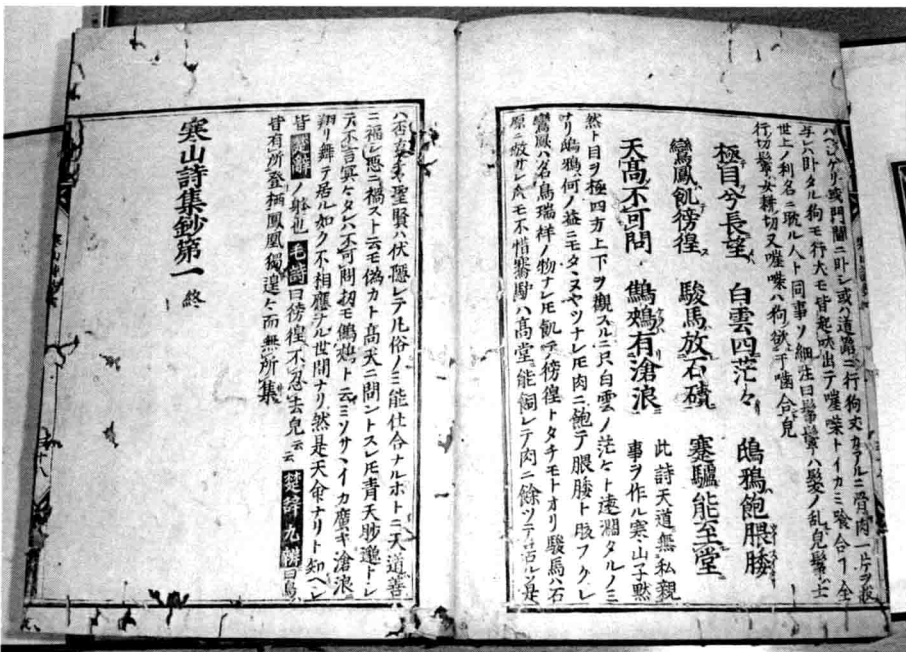 ケリ或門闌ニ臥シ或ハ道路ニ行狗丈カアルニ骨肉一片ヲ投
与レハ臥タル狗モ行犬モ皆起吠出テ嗺喍トイカミ喰合フ全
世上ノ利名ニ耽ル人ト同事ソ細注曰鬇鬡ハ髪ノ乱皃鬇ハ士
行切鬡女耕切又嗺喍ハ狗欲于噛合皃
極目兮長望 白雲四茫々 鴟鴉飽腲腇
鸞鳳飢徬徨 駿馬放石磧 蹇驢能至堂
天髙不可問 鷦鵊有滄浪 此詩天道無私親
事ヲ作ル寒山子黙
然ト目ヲ極四方上下ヲ觀スルニ只白雲ノ茫々ト遠濶タルノミ
ナリ鴟鴉何ノ益ニモタヽヌヤツナレモ肉ニ飽テ腲腇ト肢フクレ
鸞鳳ハ名鳥瑞祥ノ物ナレモ飢テ徬徨トタチモトオリ駿馬ハ石
原ニ放サレ モ不惜蹇馿ハ髙堂能飼レテ肉ニ餘ツテ居ル是
ハ否 聖賢ハ伏隱レテ凡俗ノミ能仕合ナルホトニ天道善
ニ福シ惡ニ禍スト云モ偽カト髙天ニ問ントスレモ青天眇邈トレ
テ不言冥々タレハ不可問扨モ鷦鵊ト云ミソサヽイカ廣キ滄浪
翔リ舞テ居ル如ク不相應ナル世間ナリ然是天命ナリト知ヘシ
皆 ノ躰也 毛詩曰徬徨不忍去皃云云 楚辞九辨曰鳥
皆有所登栖鳳凰獨遑々而無所集
寒山詩集鈔第一 終